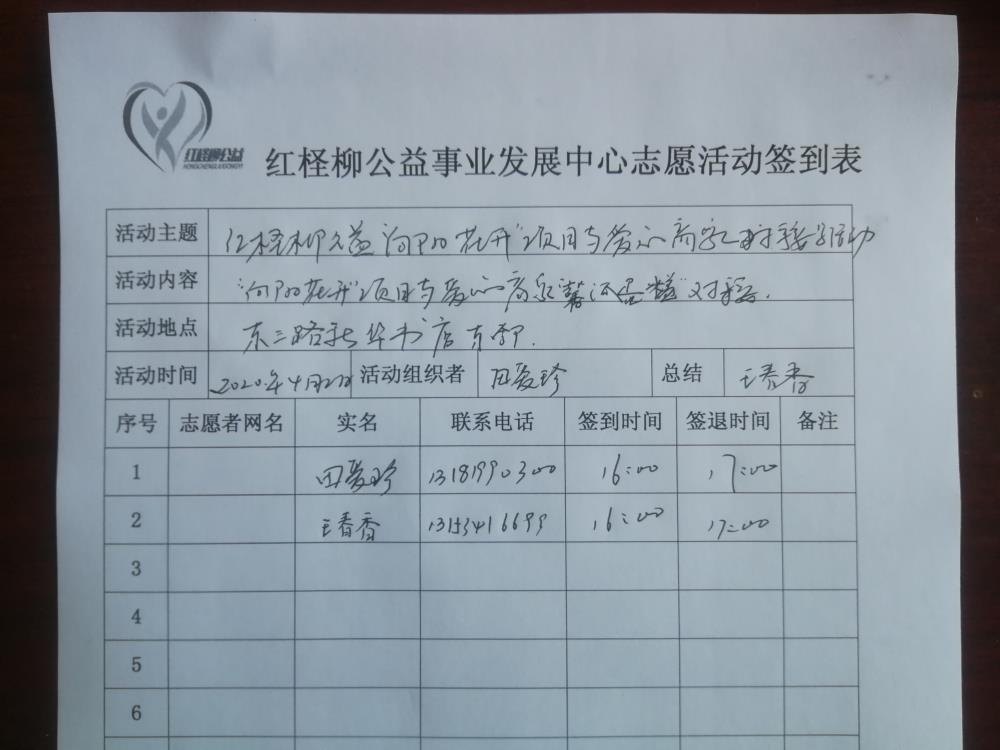 红柽柳公益
HONGCHENGLIUGONGYI
红柽柳公益事业发展中心志愿活动签到表
活动主题 红柽柳公益"向阳花开"项目与爱心商家对接活动
活动内容 "向阳花开"项目与爱心商家"馨派蛋糕"对接.
活动地点 东三路新华书店东邻.
活动时间 2020年4月 活动组织者 田爱珍 总结 王春香
序号 志愿者网名 实名 联系电话 签到时间 签退时间 备注
1 田爱珍 13181990300 16:00 17:00
2 王春香 13153416699 16:00 17:00
3
4
5
6